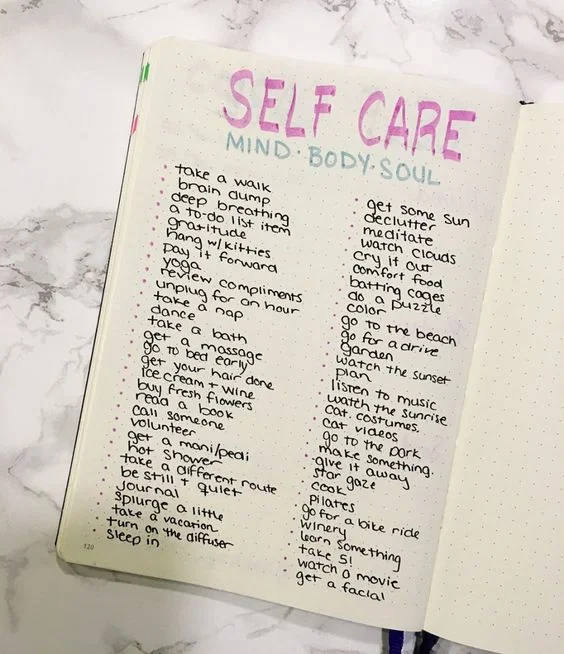 SELF CARE
MIND · BODY · SOUL
take a walk
brain dump
deep breathing
a to-do list item
gratitude
hang w/kitties
pay it forward
yoga
review compliments
unplug for an hour
take a nap
dance
take a bath
get a massage
go to bed early
get your hair done
ice cream + wine
buy fresh flowers
read a book
call someone
volunteer
get a mani/pedi
hot shower
take a different route
be still + quiet
journal
splurge a little
take a vacation
turn on the diffuser
sleep in
get some sun
declutter
meditate
watch clouds
cry it out
comfort food
batting cages
do a puzzle
color
go to the beach
go for a drive
garden
watch the sunset
plan
listen to music
watch the sunrise
cat. costumes.
cat videos
go to the park
make something.
give it away
star gaze
cook
pilates
go for a bike ride
winery
learn something
take 5!
watch a movie
get a facial
120